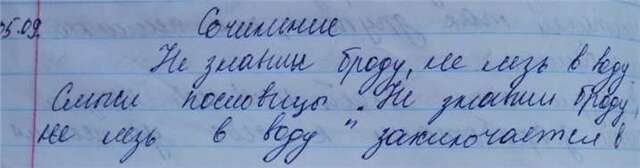 05.09. Сочинение
Не знавши броду, не лезь в воду
Смысл пословицы "Не знавши броду,
не лезь в воду" заключается в